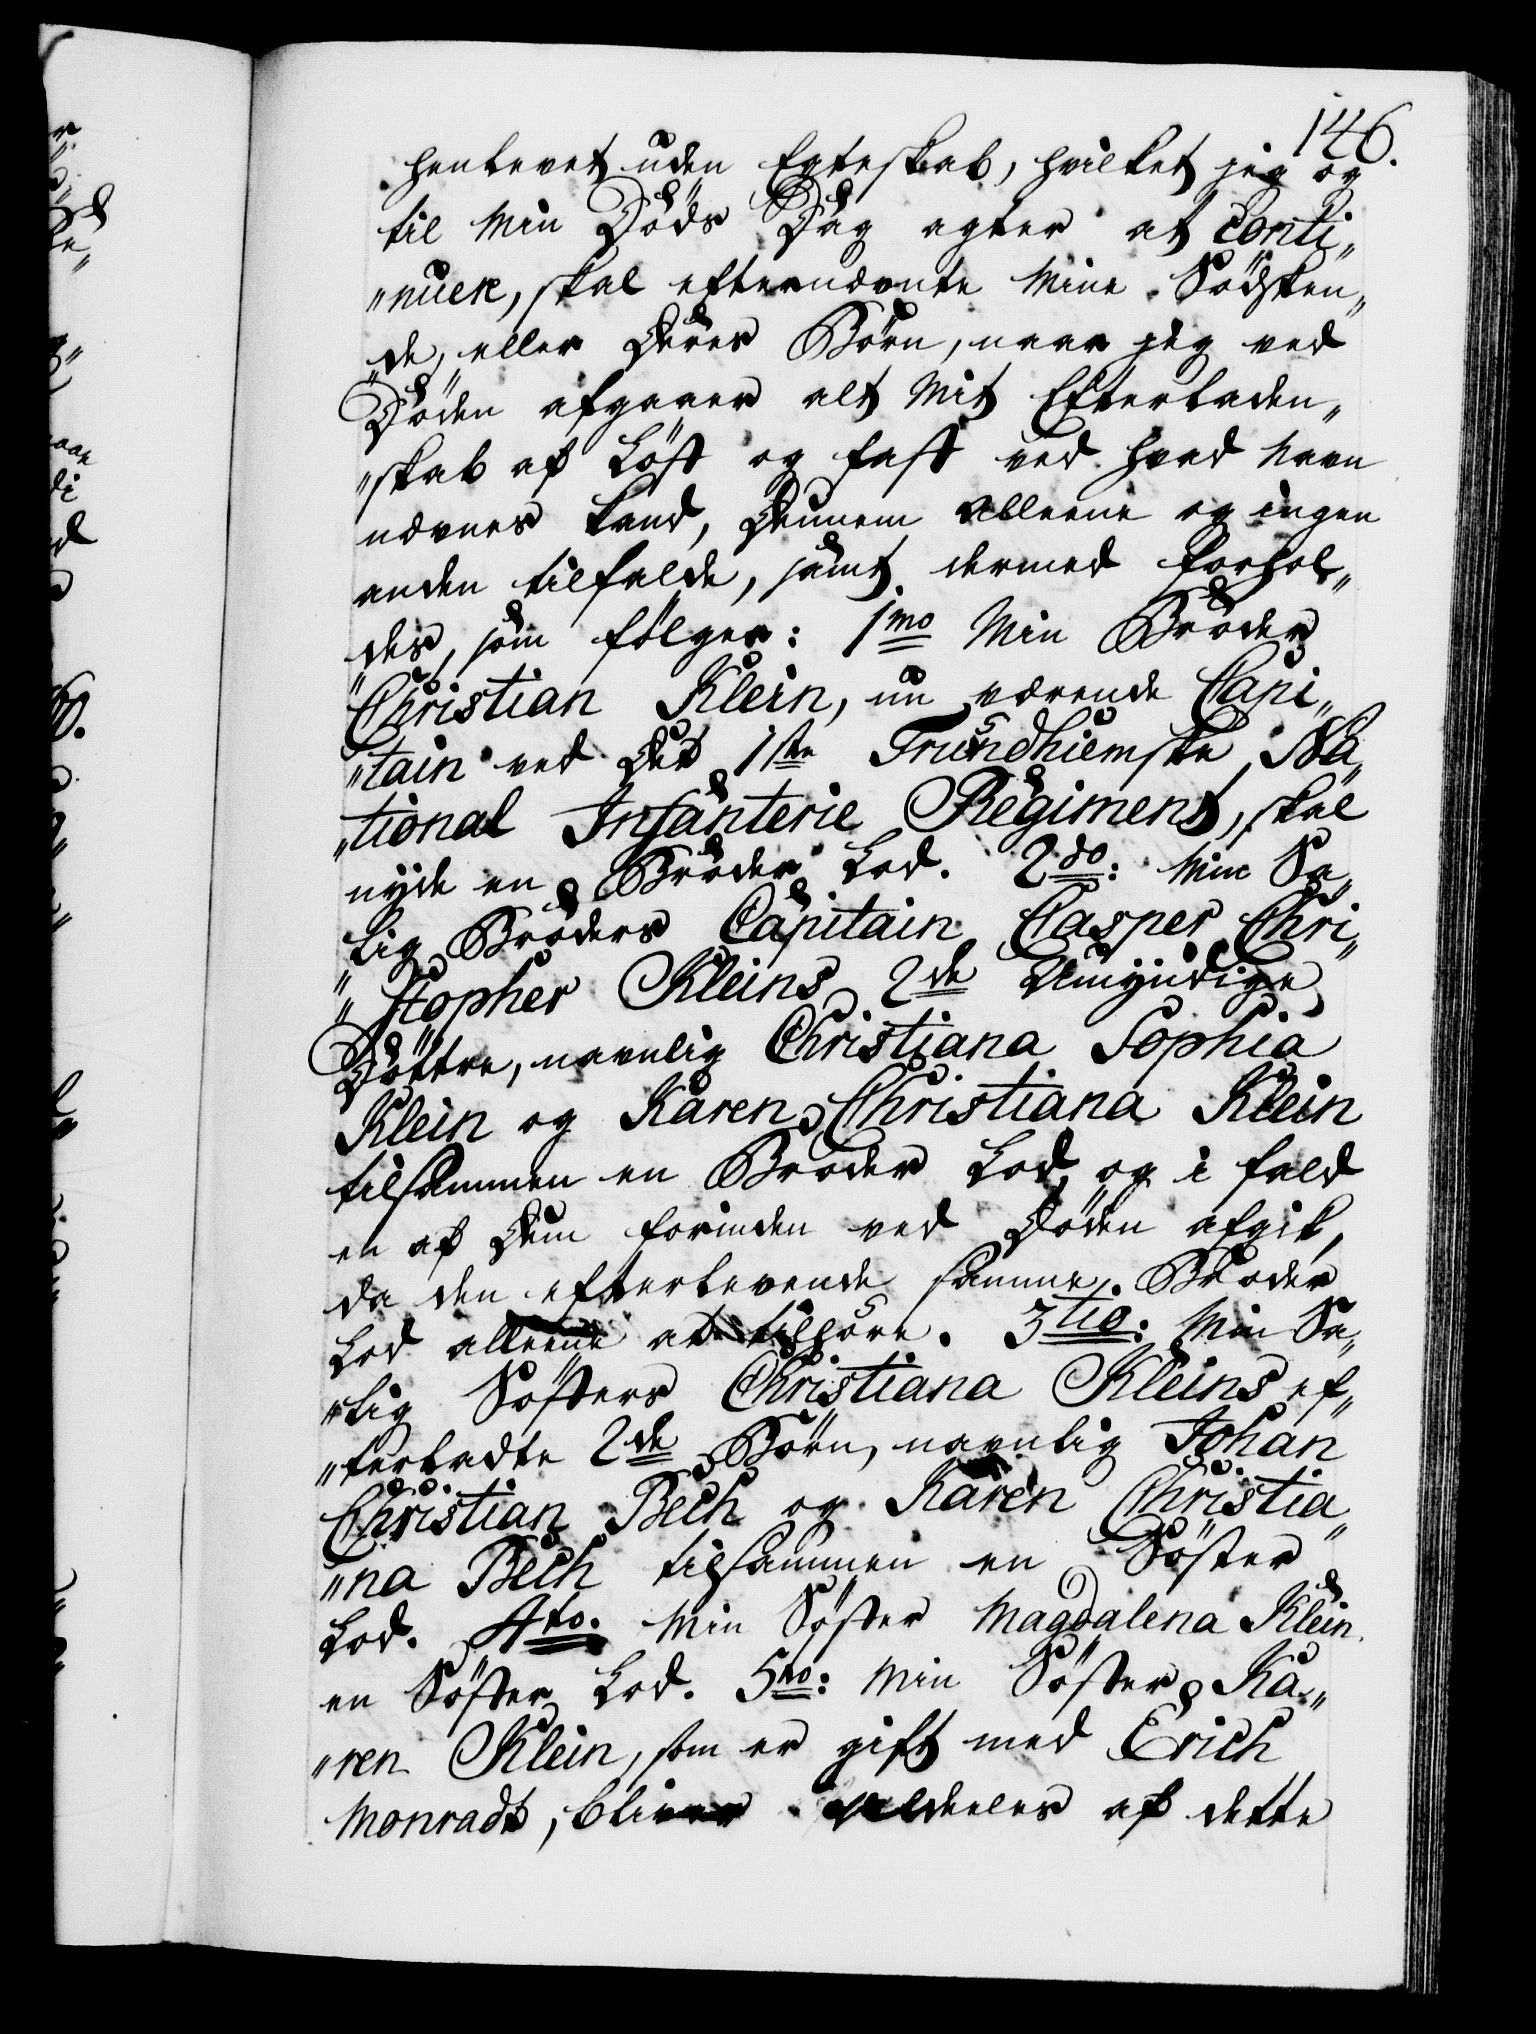 146.
henlevet uden Egteskab, hvilket jeg og
til min Döds Dag agter at Conti„
„nuere, skal efternævnte mine Södsken„
„de, eller Deres Börn, naar jeg ved
Döden afgaaer alt mit Efterladen„
„skab af Löst og fast ved hvad Navn
nævnes kand, Dennem alleene og ingen
anden tilfalde, samt dermed forhol„
„des, som fölger: 1mo Min Broder
Christian Klein, nu værende Capi„
„tain ved Det 1ste Trundhiemske Na„
„tional Infanterie Regiment, skal
nyde en Broder Lod. 2do: Min Sa„
„lig Broders Capitain Casper Chri„
„stopher Kleins 2de Umyndige
Döttre, navnlig Christiana Sophia
Klein og Karen Christiana Klein
tilsammen en Broder Lod, og i fald
en af Dem forinden ved Döden afgik,
da den efterlevende samme Broder
Lod alleene at tilhöre. 3tio: Min Sa„
„lig Søsters Christiana Kleins ef„
„terladte 2de Börn, navnlig Johan
Christian Bech og Karen Christia„
„na Bech tilsammen en Söster
Lod. 4to. Min Söster Magdalena Klein
en Söster Lod. 5to: Min Söster Ka„
„ren Klein, som er gift med Erich
Monradt, bliver aldeeles af dette